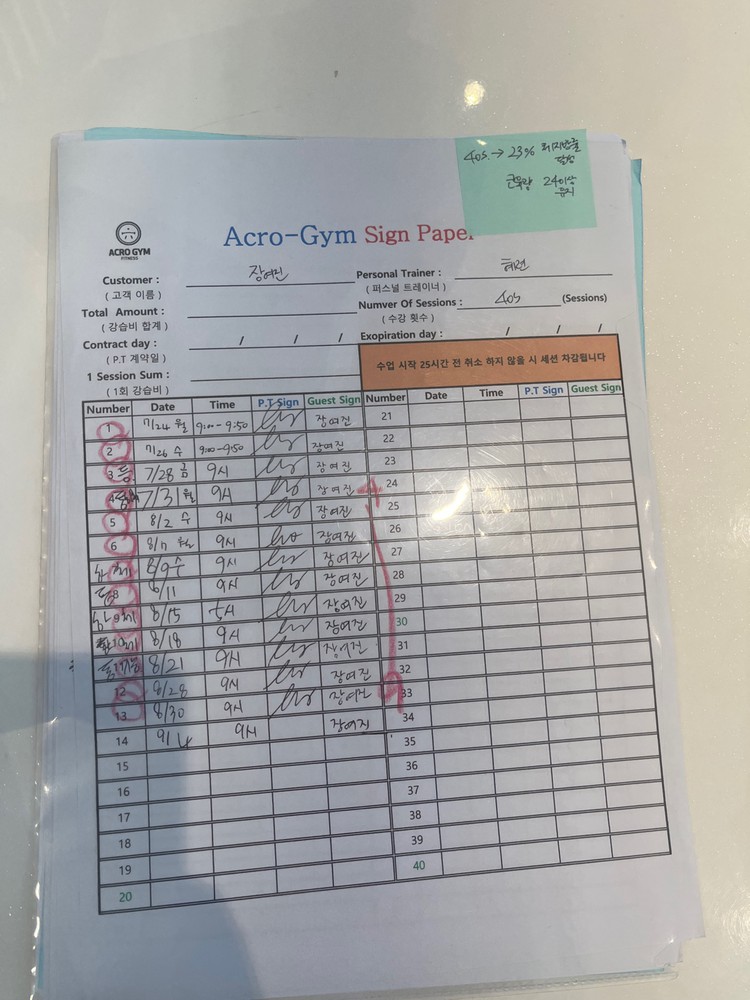 40s. → 23% 체지방률
달성
근육량 24이상
유지
ACRO GYM
FITNESS
Acro-Gym Sign Paper
Customer : 장여진
( 고객 이름 )
Personal Trainer :
( 퍼스널 트레이너 )
Total Amount :
( 강습비 합계 )
Numver Of Sessions : 40s (Sessions)
( 수강 횟수 )
Contract day : / / /
( P.T 계약일 )
Expoiration day : / / /
1 Session Sum :
( 1회 강습비 )
수업 시작 25시간 전 취소 하지 않을 시 세션 차감됩니다
Number Date Time P.T Sign Guest Sign Number Date Time P.T Sign Guest Sign
1 7/24 월 9:00-9:50 장여진 21
2 7/26 수 9:00-9:50 장여진 22
3 등 7/28 금 9시 장여진 23
4 7/31 월 9시 장여진 24
5 8/2 수 9시 장여진 25
6 8/7 월 9시 장여진 26
8/9 수 9시 장여진 27
8 8/11 9시 장여진 28
9 8/15 5시 장여진 29
10 8/18 9시 장여진 30
11 8/21 9시 장여진 31
12 8/28 9시 장여진 32
13 8/30 9시 장여진 33
14 9/4 9시 장여진 34
15 35
16 36
17 37
18 38
19 39
20 40